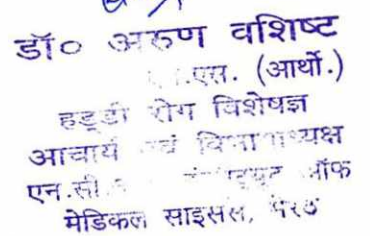 डॉ० अरुण वशिष्ट
एस. (आर्थो.)
हड्डी रोग विशेषज्ञ
आचार्य एवं विभागाध्यक्ष
एन.सी. ऑफ
मेडिकल साइसंस, मेरठ